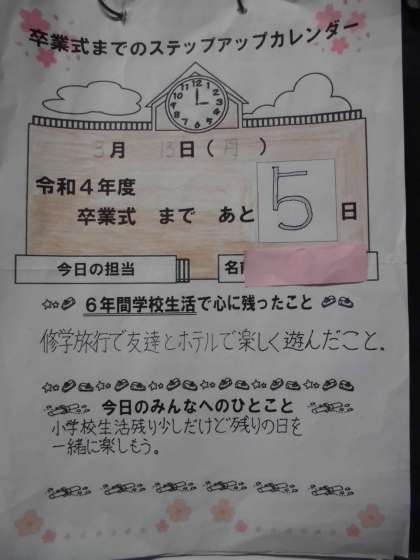 卒業式までのステップアップカレンダー
3月 13日(月)
令和4年度
卒業式 まで あと 5 日
今日の担当 名前
6年間学校生活で心に残ったこと
修学旅行で友達とホテルで楽しく遊んだこと。
今日のみんなへのひとこと
小学校生活残り少しだけど残りの日を
一緒に楽しもう。